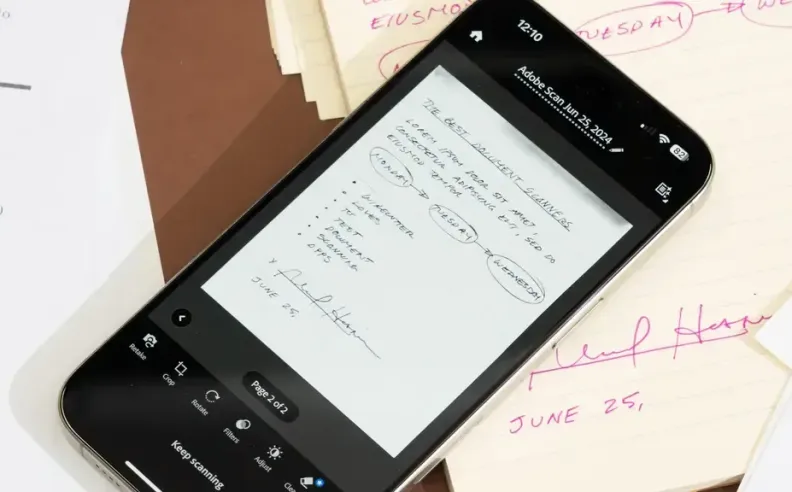 TUESDAY
12:10
82
Adobe Scan Jun 25, 2024
THE BEST DOCUMENT SCANNERS
LOREM IPSUM DOLOR SIT AMET,
CONSECTETUR ADIPISCING ELIT, SED DO
EIUSMOD TEMPOR
MONDAY → TUESDAY → WEDNESDAY
• WIRECUTTER
• LOVES
• TO
• TEST
• DOCUMENT
• SCANNING
• APPS
X
JUNE 25,
Page 2 of 2
Retake
Crop
Rotate
Filters
Adjust
Keep scanning
JUNE 25,